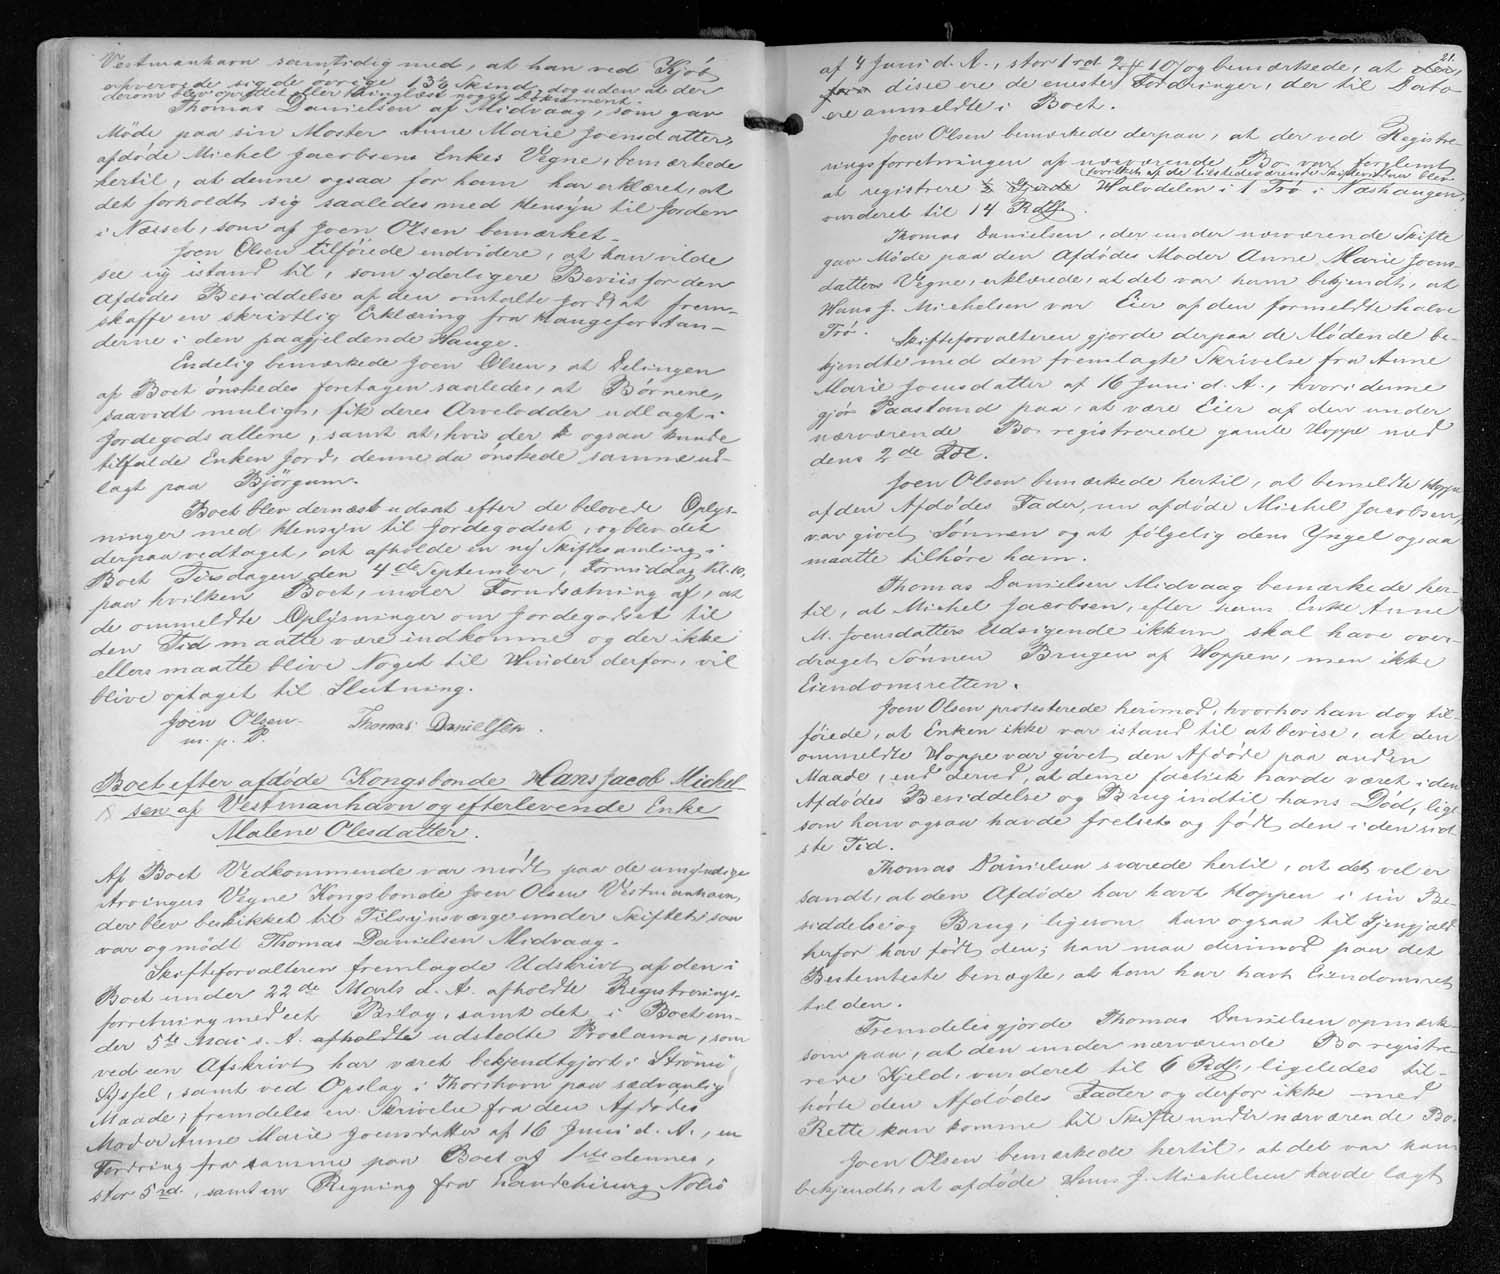 Vestmanhavn samtidig med, at han ved Kjöb
erhvervede sig de övrige 13½ Skind, dog uden at der
derom blev oprettet eller thinglæst nogen Dokument.
Thomas Danielsen af Midvaag, som gav
Möde paa sin Moster Anne Marie Joensdatter,
afdöde Michel Jacobsens Enkes Vegne, bemærkede
hertil, at denne ogsaa for ham har erklæret, at
det forholdt sig saaledes med Hensyn til Jorden
i Næsset, som af Joen Olsen bemærket.
Joen Olsen tilföiede endvidere, at han vilde
see sig istand til, som yderligere Beviis for den
Afdödes Besiddelse af den omtalte Jord at frem-
skaffe en skrivtlig Erklæring fra Haugeforstan-
derne i den paagjeldende Hauge.
Endelig bemærkede Joen Olsen, at Delingen
af Boet önskedes foretagen saaledes, at Börnene,
saavidt muligt, fik deres Arvelodder udlagt i
Jordegods allene, samt at, hvis der ogsaa kunde
tilfalde Enken Jord, denne da önskede samme ud-
lagt paa Björgum.
Boet blev dernæst udsat efter de belovede Oplys-
ninger med Hensyn til Jordegodset, og blev det
derpaa vedtaget, at afholde en ny Skiftesamling i
Boet Tirsdagen den 4de September, Formiddag Kl. 10,
paa hvilken Boet, under Forudsætning af, at
de ommeldte Oplysninger om Jordegodset til
den Tid maatte være indkomne og der ikke
ellers maatte blive Noget til Hinder derfor, vil
blive optaget til Slutning.
Joen Olsen Thomas Danielsen.
m. p. P.
Boet efter afdöde Kongsbonde Hans Jacob Michel-
sen af Vestmanhavn og efterlevende Enke
Malene Olesdatter.
Af Boet Vedkommende var mödt paa de umyndige
Arvingers Vegne Kongsbonde Joen Olsen Vestmanhavn,
der blev beskikket til Tilsynsværge under Skiftet; saa
var og mödt Thomas Danielsen Midvaag.
Skifteforvalteren fremlagde Udskrivt af den i
Boet under 22de Marts d. A. afholdte Registrerings-
forretning med eet Bilag, samt det i Boet un-
der 5te Mai s. A. afholdte udstedte Proclama, som
ved een Afskrivt har været bekjendtgjort i Strömö
Syssel, samt ved Opslag i Thorshavn paa sædvanlig
Maade; fremdeles en Skrivelse fra den Afdödes
Moder Anne Marie Joensdatter af 16 Juni d. A., en
Fordring fra samme paa Boet af 1ste dennes,
stor 5 rd., samt en Regning fra Landchirurg Nolsö
21.
af 4 Juni d. A., stor 1 rd 2 # 10 / og bemærkede, at
disse ere de eneste Fordringer, der til Dato
ere anmeldte i Boet.
Joen Olsen bemærkede derpaa, at der ved Registre-
ringsforretningen af nærværende Bo var forglemt
at registrere ½ Halvdelen i 1 Trö i Næshaugen,
(hvilket af de tilstedeværende Skiftevidner blev
vurderet til 14 Rdlr.
Thomas Danielsen, der under nærværende Skifte
gav Möde paa den Afdödes Moder Anne Marie Joens-
datters Vegne, erklærede, at det var ham bekjendt, at
Hans J. Michelsen var Eier af den formeldte halve
Trö.
Skifteforvalteren gjorde derpaa de Mödende be-
kjendte med den fremlagte Skrivelse fra Anne
Marie Joensdatter af 16 Juni d. A., hvori denne
gjör Paastand paa, at være Eier af den under
nærværende Bo registrerede gamle Hoppe med
dens 2de Föl.
Joen Olsen bemærkede hertil, at bemeldte Hoppe
af den Afdödes Fader, nu afdöde Michel Jacobsen,
var givet Sönnen og at fölgelig dens Yngel ogsaa
maatte tilhöre ham.
Thomas Danielsen Midvaag bemærkede her-
til, at Michel Jacobsen, efter hans Enke Anne
M. Joensdatters Udsigende ikkun skal have over-
draget Sönnen Brugen af Hoppen, men ikke
Eiendomsretten.
Joen Olsen protesterede herimod, hvorhos han dog til-
föiede, at Enken ikke var istand til at bevise, at den
ommeldte Hoppe var givet den Afdöde paa anden
Maade, end derved, at denne factisk havde været i den
Afdödes Besiddelse og Brug indtil hans Död, lige
som han ogsaa havde frelset og födt den i den sid-
ste Tid.
Thomas Danielsen svarede hertil, at det vel er
sandt, at den Afdöde har havt Hoppen i sin Be-
siddelse og Brug, ligesom han ogsaa til Gjengjæld
herfor har födt den; han maa derimod paa det
Bestemteste benægte, at han har havt Eiendomsret
til den.
Fremdeles gjorde Thomas Danielsen opmærk-
som paa, at den under nærværende Bo registre-
rede Kjeld, vurderet til 6 Rdlr, ligeledes til-
hörte den Afdödes Fader og derfor ikke med
Rette kan komme til Skifte under nærværende Bo.
Joen Olsen bemærkede hertil, at det var ham
bekjendt, at afdöde Hans J. Michelsen havde lagt